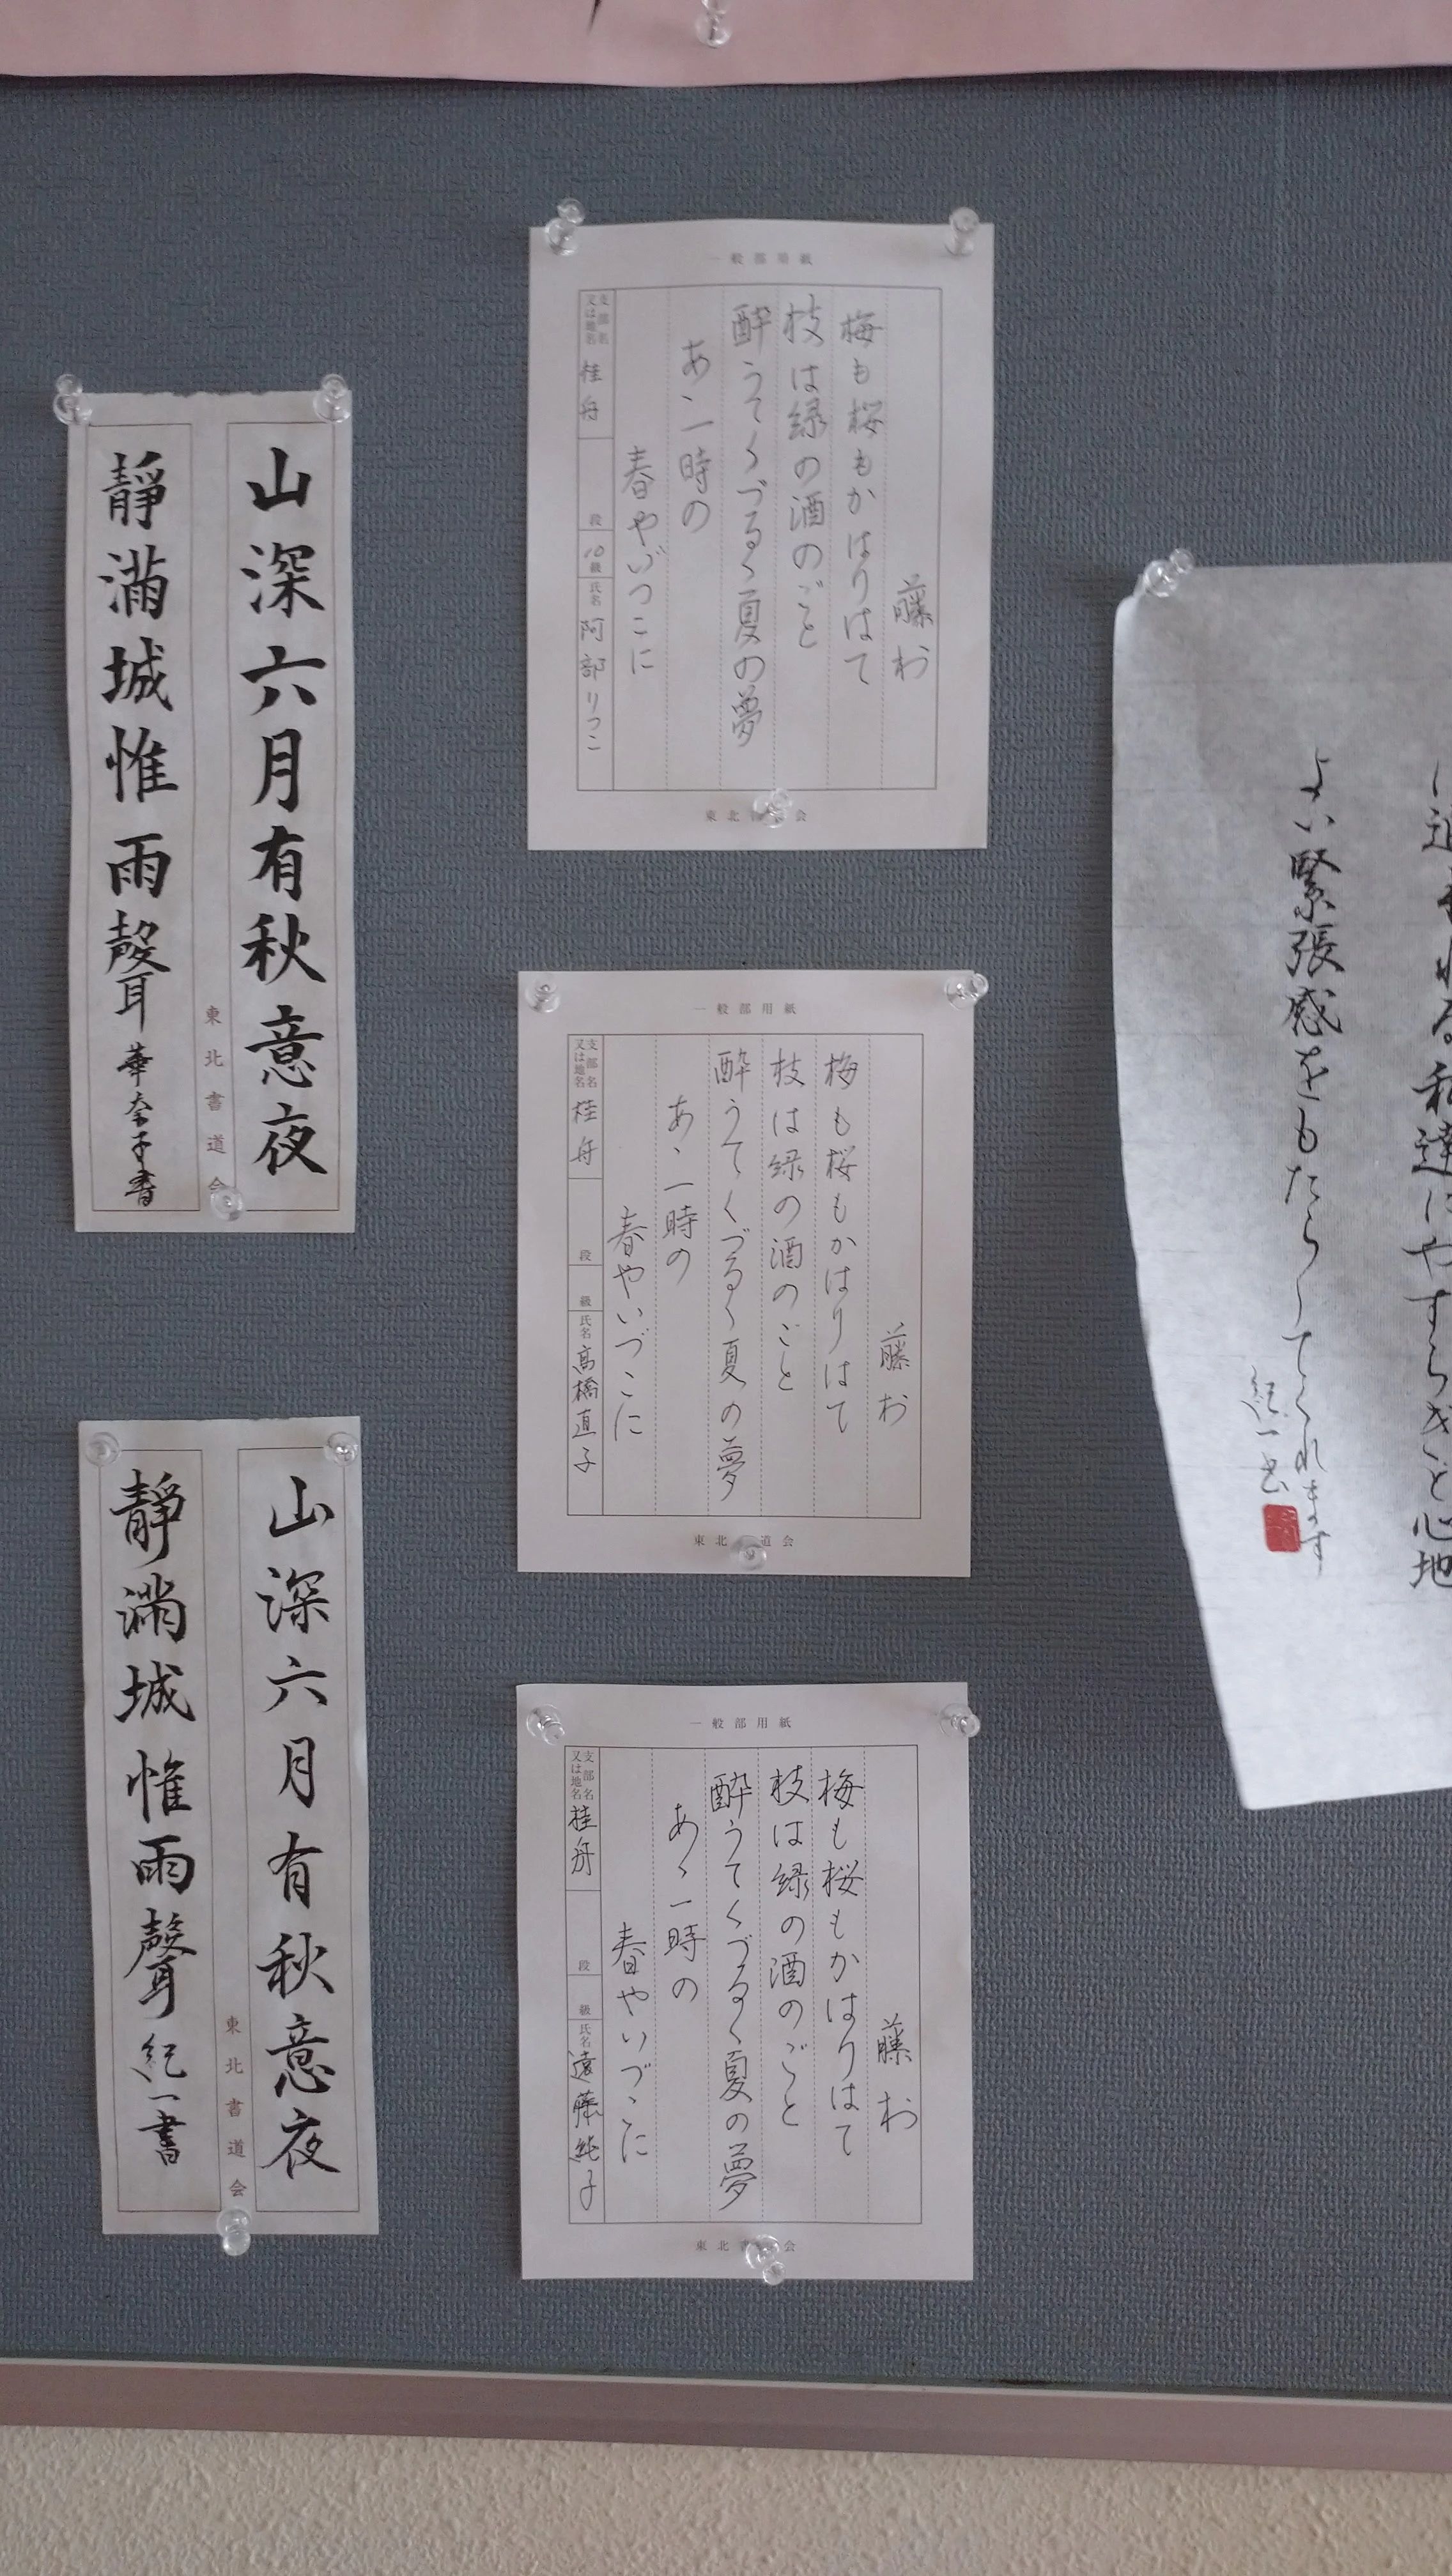 山深六月有秋意夜
靜滿城惟雨聲
華奈子書
東北書道会
山深六月有秋意夜
靜滿城惟雨聲
紀一書
東北書道会
一般部用紙
藤村
梅も桜もかはりはて
枝は緑の酒のごと
酔うてくづるゝ夏の夢
あゝ一時の
春やいづこに
支部名又は地名
桂舟
段
10級
氏名
阿部りつこ
東北 会
一般部用紙
藤村
梅も桜もかはりはて
枝は緑の酒のごと
酔うてくづるゝ夏の夢
あゝ一時の
春やいづこに
支部名又は地名
桂舟
段
級
氏名
高橋直子
東北 道会
一般部用紙
藤村
梅も桜もかはりはて
枝は緑の酒のごと
酔うてくづるゝ夏の夢
あゝ一時の
春やいづこに
支部名又は地名
桂舟
段
級
氏名
遠藤純子
東北 会
私達にやすらぎと心地
よい緊張感をもたらしてくれます
紀一書